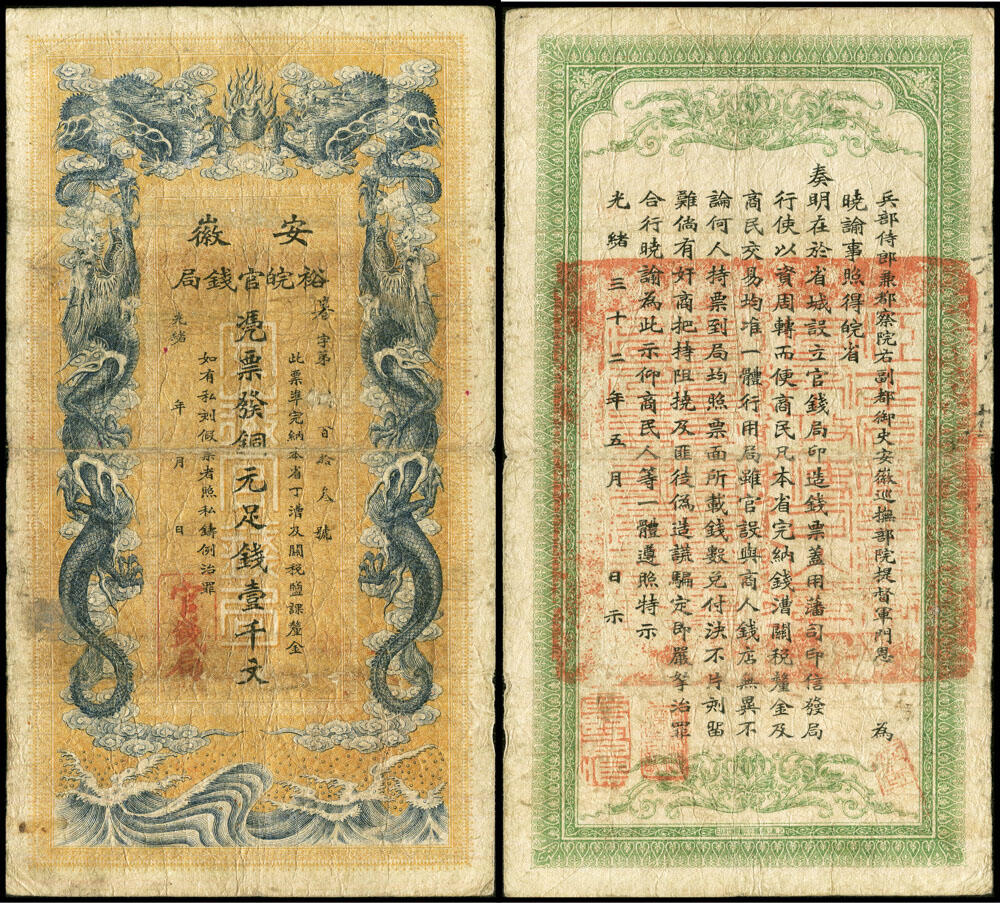 安徽
裕皖官錢局
字第 百拾叁號
此票準完納本省丁漕及關稅鹽課釐金
憑票發銅元足錢壹千文
如有私刻假票者照私鑄例治罪
光緒 年 月 日
官錢局
兵部侍郎兼都察院右副都御史安徽巡撫部院提督軍門恩 為
曉諭事照得皖省
奏明在於省城設立官錢局印造錢票蓋用藩司印信發局
行使以資周轉而便商民凡本省完納錢漕關稅釐金及
商民交易均准一體行用局雖官設與商人錢店無異不
論何人持票到局均照票面所載錢數兌付決不片刻留
難倘有奸商把持阻撓及匪徒偽造謊騙定即嚴拏治罪
合行曉諭為此示仰商民人等一體遵照特示
光緒三十二年五月 日示